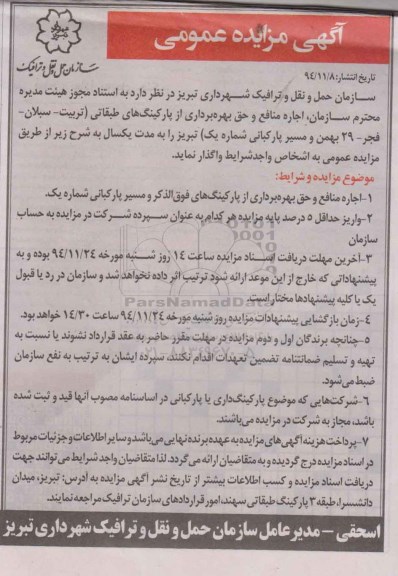 آگهی مزایده عمومی
سازمان حمل و نقل و ترافیک
تاریخ انتشار: ۹۴/۱۱/۸
سازمان حمل و نقل و ترافیک شهرداری تبریز در نظر دارد به استناد مجوز هیئت مدیره
محترم سازمان، اجاره منافع و حق بهره‌برداری از پارکینگ‌های طبقاتی (تربیت- سبلان-
فجر- ۲۹ بهمن و مسیر پارکبانی شماره یک) تبریز را به مدت یکسال به شرح زیر از طریق
مزایده عمومی به اشخاص واجدشرایط واگذار نماید.
موضوع مزایده و شرایط:
۱-اجاره منافع و حق بهره‌برداری از پارکینگ‌های فوق‌الذکر و مسیر پارکبانی شماره یک.
۲-واریز حداقل ۵ درصد پایه مزایده هر کدام به عنوان سپرده شرکت در مزایده به حساب
سازمان
۳-آخرین مهلت دریافت اسناد مزایده ساعت ۱۴ روز شنبه مورخه ۹۴/۱۱/۲۴ بوده و به
پیشنهاداتی که خارج از این موعد ارائه شود ترتیب اثر داده نخواهد شد و سازمان در رد یا قبول
یک یا کلیه پیشنهادها مختار است.
ParsNamadData
۴-زمان بازگشایی پیشنهادات مزایده روز شنبه مورخه ۹۴/۱۱/۲۴ ساعت ۱۴/۳۰ خواهد بود.
۵-چنانچه برندگان اول و دوم مزایده در مهلت مقرر حاضر به عقد قرارداد نشوند یا نسبت به
تهیه و تسلیم ضمانتنامه تضمین تعهدات اقدام نکنند، سپرده ایشان به ترتیب به نفع سازمان
ضبط می‌شود.
۶-شرکت‌هایی که موضوع پارکینگ‌داری یا پارکبانی در اساسنامه مصوب آنها قید و ثبت شده
باشد، مجاز به شرکت در مزایده می‌باشند.
۷-پرداخت هزینه آگهی‌های مزایده به عهده برنده نهایی می‌باشد و سایر اطلاعات و جزئیات مربوط
در اسناد مزایده درج گردیده و به متقاضیان ارائه می‌گردد. لذا متقاضیان واجد شرایط می‌توانند جهت
دریافت اسناد مزایده و کسب اطلاعات بیشتر از تاریخ نشر آگهی مزایده به آدرس: تبریز، میدان
دانشسرا، طبقه ۳ پارکینگ طبقاتی سهند، امور قراردادهای سازمان ترافیک مراجعه نمایند.
اسحقی – مدیرعامل سازمان حمل و نقل و ترافیک شهرداری تبریز